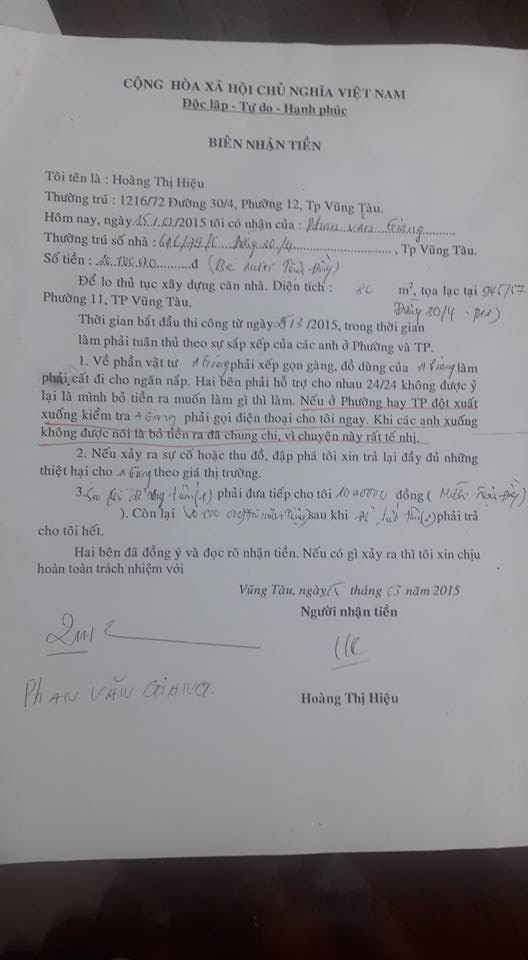 CỘNG HÒA XÃ HỘI CHỦ NGHĨA VIỆT NAM
Độc lập - Tự do - Hạnh phúc
BIÊN NHẬN TIỀN
Tôi tên là : Hoàng Thị Hiệu
Thường trú : 1216/72 Đường 30/4, Phường 12, Tp Vũng Tàu.
Hôm nay, ngày /2015 tôi có nhận của : Phan Văn Giang
Thường trú số nhà : , Tp Vũng Tàu.
Số tiền : đ (Ba Mươi Triệu Đồng)
Để lo thủ tục xây dựng căn nhà. Diện tích : 80 m², tọa lạc tại 945/57
Phường 11, TP Vũng Tàu. Đường 30/4
Thời gian bắt đầu thi công từ ngày /3/2015, trong thời gian
làm phải tuân thủ theo sự sắp xếp của các anh ở Phường và TP.
1. Về phần vật tư A Giang phải xếp gọn gàng, đồ dùng của A Giang làm
phải cất đi cho ngăn nắp. Hai bên phải hỗ trợ cho nhau 24/24 không được ỷ
lại là mình bỏ tiền ra muốn làm gì thì làm. Nếu ở Phường hay TP đột xuất
xuống kiểm tra A Giang phải gọi điện thoại cho tôi ngay. Khi các anh xuống
không được nói là bỏ tiền ra đã chung chi, vì chuyện này rất tế nhị.
2. Nếu xảy ra sự cố hoặc thu đồ, đập phá tôi xin trả lại đầy đủ những
thiệt hại cho A Giang theo giá thị trường.
3. Sau khi tầng (1) phải đưa tiếp cho tôi đồng (Mười Triệu Đồng
). Còn lại sau khi (2) phải trả
cho tôi hết.
Hai bên đã đồng ý và đọc rõ nhận tiền. Nếu có gì xảy ra thì tôi xin chịu
hoàn toàn trách nhiệm với
Vũng Tàu, ngày 15 tháng 03 năm 2015
Người nhận tiền
PHAN VĂN GIANG.
Hoàng Thị Hiệu